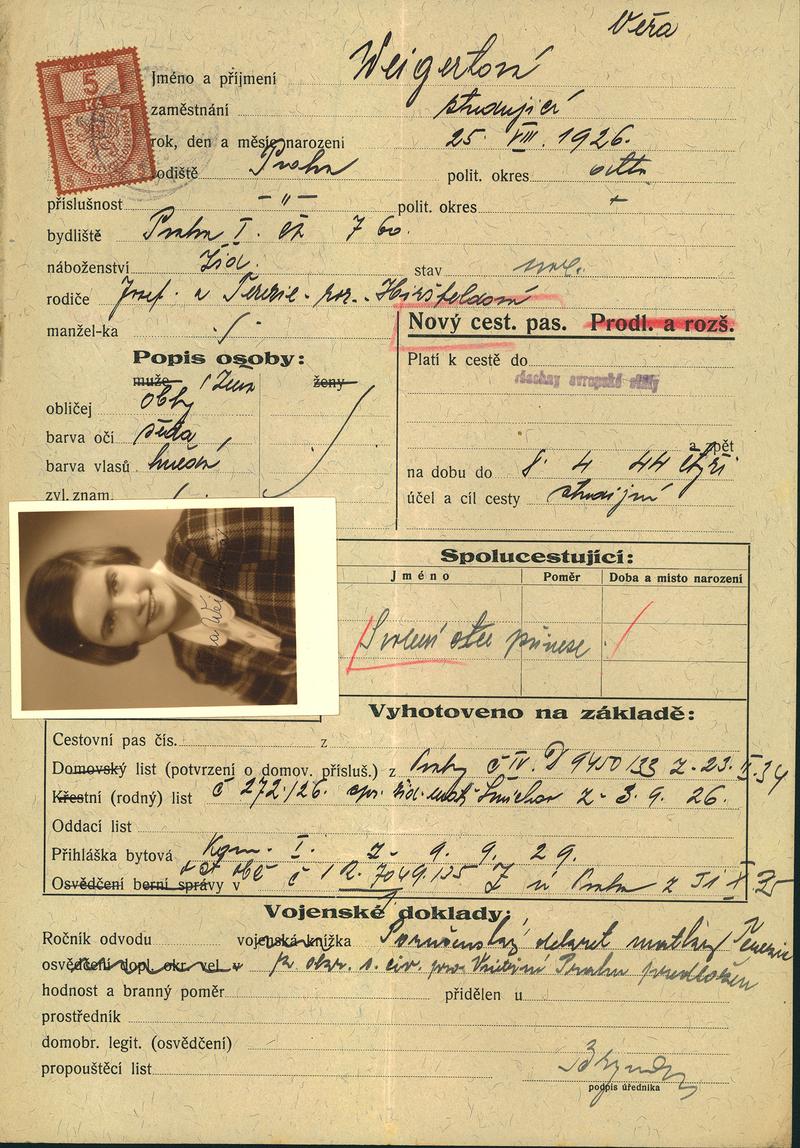 Věra
KOLEK
5
Kč
Jméno a příjmení Weigertová
zaměstnání studující
rok, den a měsíc narození 25. VIII. 1926.
rodiště Praha polit. okres dtto
příslušnost — " — polit. okres
bydliště Praha I. čp 760.
náboženství žid. stav
rodiče Josef a Terezie roz. Hiršfeldová
manžel-ka
Nový cest. pas. Prodl. a rozš.
Popis osoby:
muže žena ženy
obličej oblý
barva očí šedá
barva vlasů hnědá
zvl. znam.
Platí k cestě do
všechny evropské státy
a zpět
na dobu do 8. 4 44 čtyři
účel a cíl cesty studijní
Spolucestující:
Jméno Poměr Doba a místo narození
Svolení otce přinese.
Vyhotoveno na základě:
Cestovní pas čís. z
Domovský list (potvrzení o domov. přísluš.) z Prahy č IV. D 9450/33 z 23. II. 34
Křestní (rodný) list č 272/26. žid. mat. Smíchov z 3. 9. 26.
Oddací list
Přihláška bytová I. z 9. 9. 29.
Osvědčení berní správy v č 1 R. 7049/35 Praha z X. 35
Vojenské doklady:
Ročník odvodu vojenská knížka Poručenský dekret matky Terezie
osvědčení dopl. okr. vel. v okr. s. civ. pro Vnitřní Prahu předložen
hodnost a branný poměr přidělen u
prostředník
domobr. legit. (osvědčení)
propouštěcí list
podpis úředníka